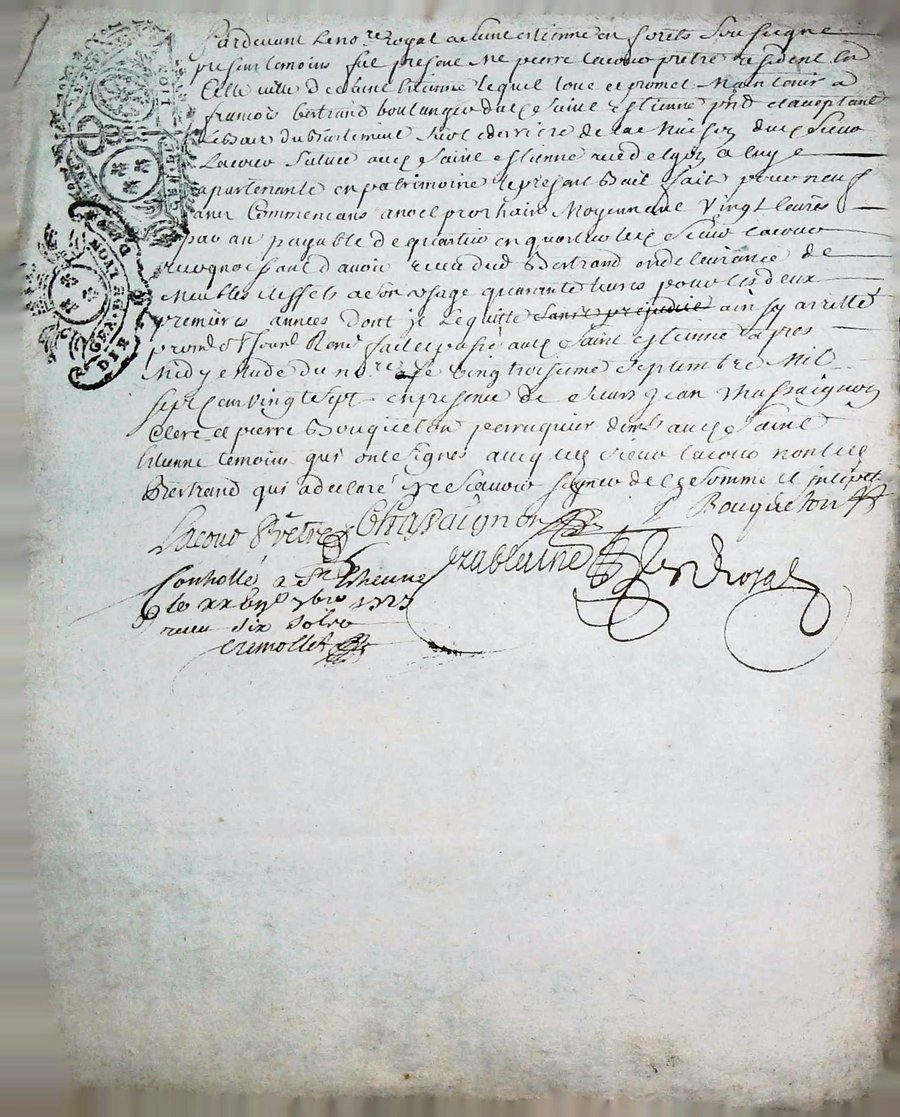 Pardevant le no.re Royal de saint estienne en forets soussigné
present temoins fut present me pierre lacour pretre resident en
cette ville de saint etienne lequel loue et promet maintenir a
francois bertrand boulanger dud saint Estienne pnt et acceptant
le bas du batiment sur le derriere de la maison dud sieur
Lacour située aud saint estienne rue de lyon a luy
apartenante en patrimoine le present bail fait pour neuf
années Commencans a noel prochain moyennant vingt livres
par an payable de quartier en quartier led sieur lacour
recognoissant d'avoir receu dud Bertrand en delivrance de
meubles et effets a son usage quarante livres pour les deux
premieres années dont je le quitte sans prejudice ainsy arretté
fait et passé aud saint estienne apres
Midy etude du no.re le vingt troisieme septembre mil
sept cent vingt sept en presence de sieurs Jean
Clerc et pierre Bouqueton perruquier aud saint
Etienne temoins qui ont signés avec led sieur lacour non led
Bertrand qui a declaré ne scavoir signer de ce sommé et
Lacour Prêtre P Bouqueton
Royal
Conttollé a St Etienne
le 7bre 1727
receu six sols